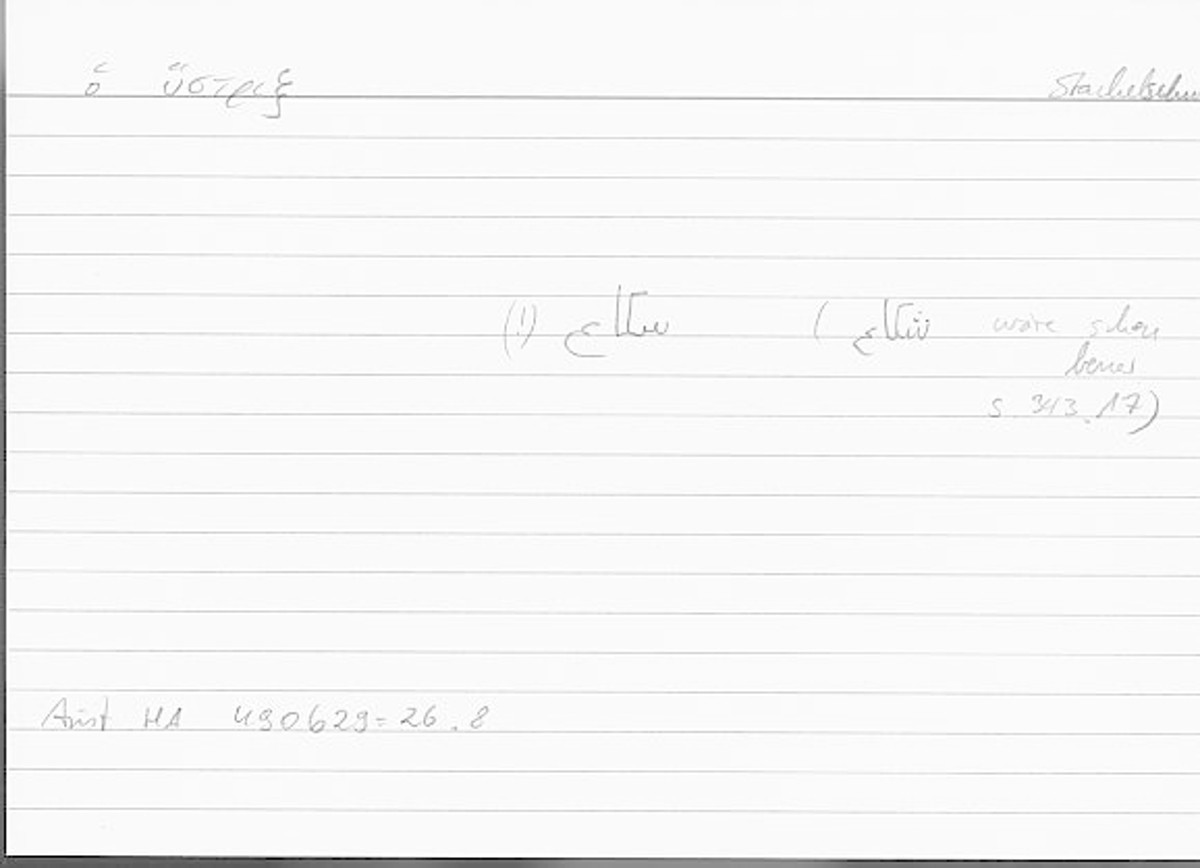 ὁ ὕστριξ Stachelschw
(!) سكاع ( شكاع wäre schon
besser
S. 343.17)
Arist HA 490b29 = 26.8